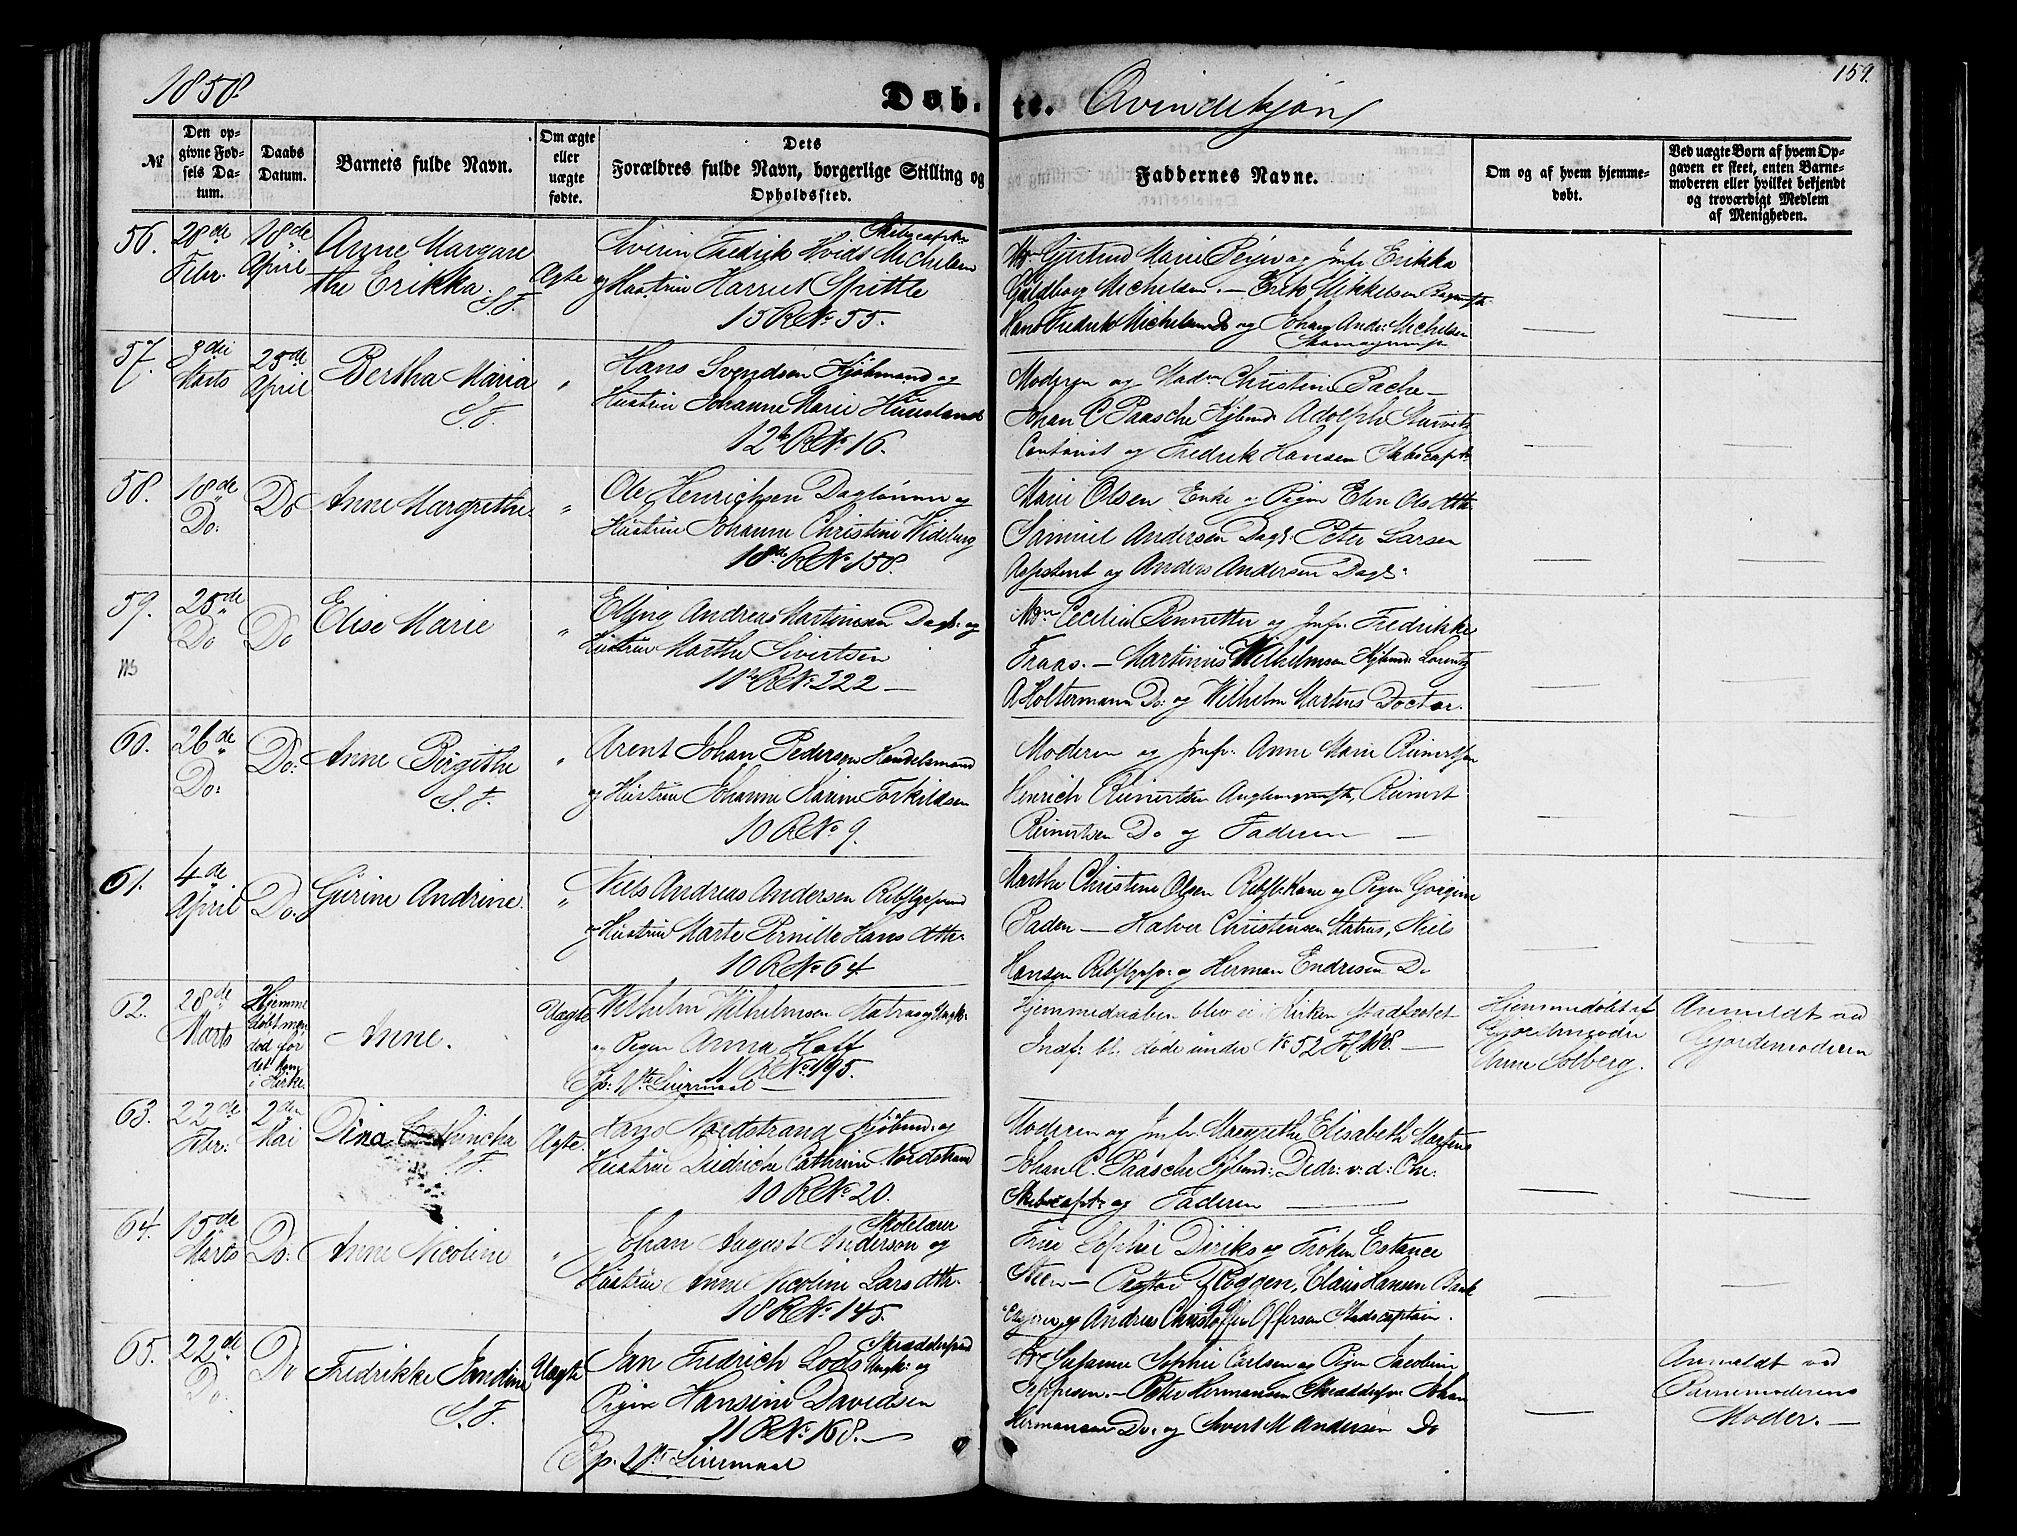 1858.
Døb-te. Qvindekjøn
159.
№
Den opgivne Fødsels Datum.
Daabs Datum.
Barnets fulde Navn.
Om ægte eller uægte fødte.
Dets Forældres fulde Navn, borgerlige Stilling og Opholdssted.
Faddernes Navne.
Om og af hvem hjemmedøbt.
Ved uægte Børn af hvem Opgaven er skeet, enten Barnemoderen eller hvilket bekjendt og troværdigt Medlem af Menigheden.
56.
28de Febr.
18de April
Anne Margarethe Erikka.
S.F.
Ægte
Skibscapt.
Siverin Fredrik Hvids Michelsen
og Hustrue Harriet Spittle
15 R No 55.
Gjertrud Marie og Jmfr. Erikka
Michelsen. — Erik Mikkelsen
Hans Fredrik Michelsen Do og Johan Andr. Michelsen
57.
3die Marts
25de April
Bertha Maria
S.F.
"
Hans Svendsen Kjøbmand og
Hustrue Johanne Marie
12te R No. 16.
Moderen og Mad. Christine Pache —
Johan C Paasche Kjbmd. Adolph
Contorist og Fredrik Hansen Skibscapt.
58.
18de Do:
Do
Anne Margrethe
"
Ole Henrichsen Dagleinner og
Hustrue Johanne Christine Wideberg
18de R No. 158.
Marie Olsen Enke og Pigen Elen Olsdttr.
Samuel Andersen Dagl. Peter Larsen
og Anders Andersen Dagl.
59.
25de Do
Do
Elise Marie
"
Elling Andreas Martinsen Dagl. og
Hustrue Marthe Sivertsen
11te R No. 222 —
Cecilia og Jmfr. Fredrikke
Fraas. — Martinus Wilhelmsen Kjbmd. Lorentz
A Holtermann Do: og Wilhelm Martens Doctor.
60.
26de Do:
Do:
Anne Birgithe
S.F.
"
Arent Johan Pedersen Handelsmand
og Hustrue Johanne Karine Torkildsen
10 R No 9.
Moderen og Jmfr. Anne Marie Reinertsen
Henrich Reinertsen Reinert
Reinertsen Do og Faderen —
61.
4de April
Do:
Gurine Andrine.
"
Niels Andreas Andersen
og Hustrue Marte Pernille Hansdttr.
10 R No 64
Marthe Christine Olsen og Pigen
Paden — Halvor Christensen Matros, Niels
Hansen og Herman Endresen Do
62.
28de Marts
Hjemmedøbt men død før det kom i Kirke.
Anne.
Uægte
Wilhelm Wilhelmsen Matros Ungk.
og Pigen Anna Hoff
11 R No. 195.
Fp: 1ste Leiermaal —
Hjemmedaaben blev ei i Kirken stadfæstet
Indf. bl. døde under No 52 Fol 188. —
Hjemmedøbt af
Anne Solberg.
Anmeldt ved
Gjordemoderen
63.
22de Febr:
2den Mai
Dina Cathincka
S.F.
Ægte.
Hans Nordstrand Kjøbmd. og
Hustrue Diedriche Cathrine Nordstrand
10 R No 20.
Moderen og Jmfr. Margrethe Elisabeth Martens
Johan C. Paasche Kjbmd: Didr: v: d: Ohe.
Skibscapt: og Faderen
64.
15de Marts
Do:
Anne Nicoline
"
Skolelærer
Johan August Anderson og
Hustrue Anne Nicoline Larsdttr.
18 R No. 145.
Frue Sophie Diriks og Frøken Estance
Steen — Pastor Roggen, Claus Hansen
og Andreas Christoffer Offersen Stadscaptain.
65.
22de Do:
Do
Fredrikke Jandine
S.F.
Uægte
Skræddersvend
Jan Fredrich Lods Ungk: og
Pigen Hansine Davidsen
11 R No. 168. —
Fp. 1ste Leiermaal
Susanne Sophie Carlsen og Pigen Jacobine
Jeppesen. — Peter Hermansen Skræddersv. Johan
Hermansen Do. og Sivert M Andersen Do
Anmeldt ved
Barnemoderens
Moder. —